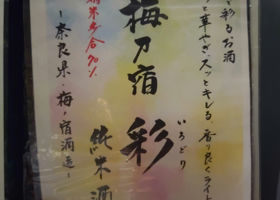 と彩るお酒
と華やぎ、スッとキレる、香り良くライト
梅乃宿 彩
いろどり
純米酒
精米歩合70%
－奈良県・梅ノ宿酒造－